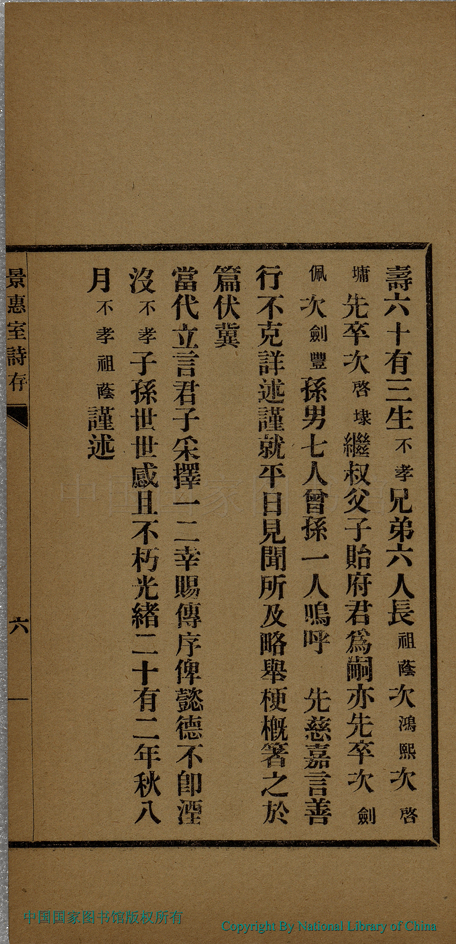 壽六十有三生不孝兄弟六人長祖蔭次鴻熙次啓
墉先卒次啓埭繼叔父子貽府君爲嗣亦先卒次劍
佩次劍豐孫男七人曾孫一人嗚呼 先慈嘉言善
行不克詳述謹就平日見聞所及略舉梗概箸之於
篇伏冀
當代立言君子采擇一二幸賜傳序俾懿德不卽湮
沒不孝子孫世世感且不朽光緒二十有二年秋八
月不孝祖蔭謹述
景惠室詩存
六
中国国家图书馆版权所有
Copyright By National Library of China